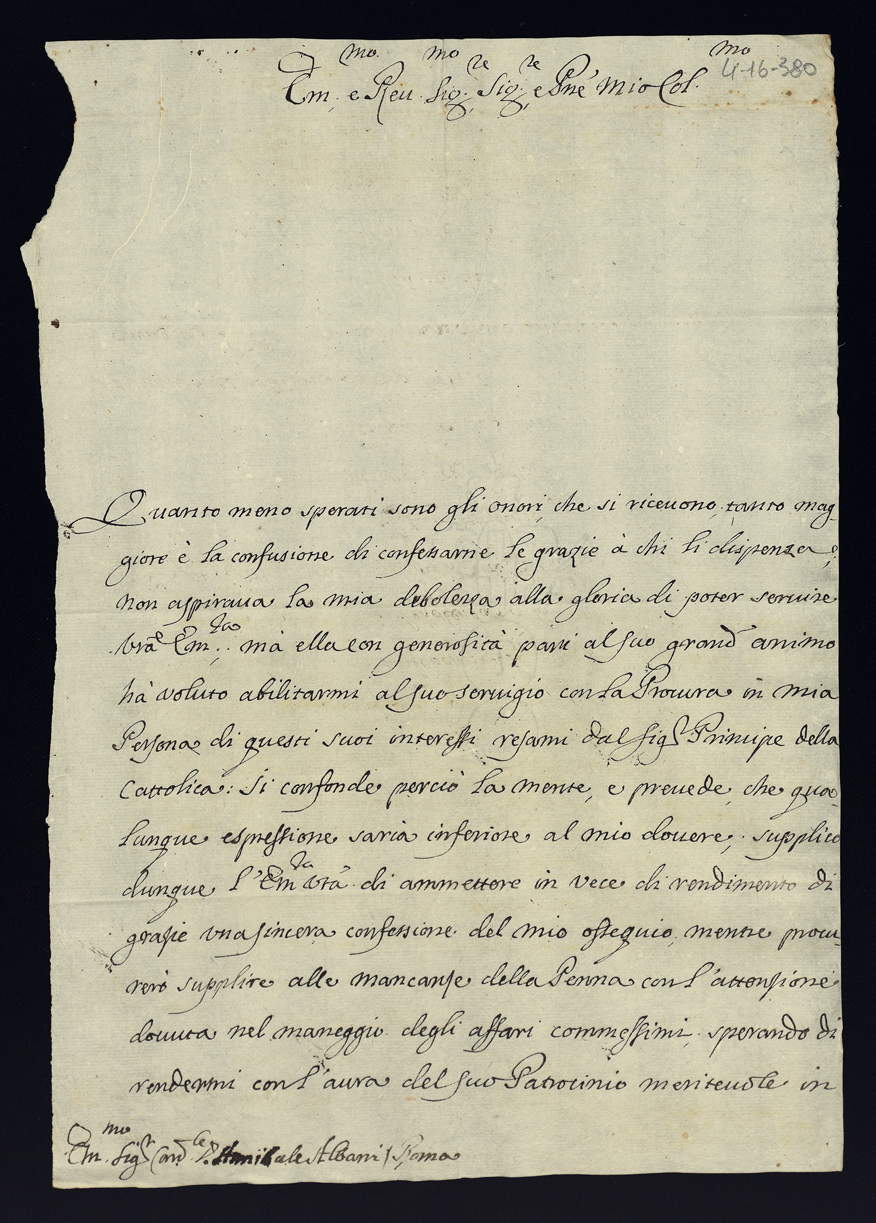 4-16-380
Em.mo e Reu.mo Sig.re Sig.re e Pn̄e mio Col.mo
Quanto meno sperati sono gli onori, che si riceuono, tanto mag-
giore è la confusione di confessarne le grazie à chi li dispenza,
non aspiraua la mia debolezza alla gloria di poter seruire
Vrã Em.za; mà ella con generosità pari al suo grand' animo
hà voluto abilitarmi al suo seruigio con la Procura in mia
Persona di questi suoi interessi resami dal Sig.r Principe della
Cattolica: Si confonde perciò la mente, e preuede, che qua-
lunque espressione saria inferiore al mio douere; supplico
dunque l'Em.za Vrã di ammettere in vece di rendimento di
grazie vna sincera confessione del mio ossequio, mentre procu-
rerò supplire alle mancanze della Penna con l'attenzione
douuta nel maneggio degli affari commessimi, sperando di
rendermi con l'aura del suo Patrocinio meriteuole in
Em.mo Sig.r Card.le D. Annibale Albani / Roma